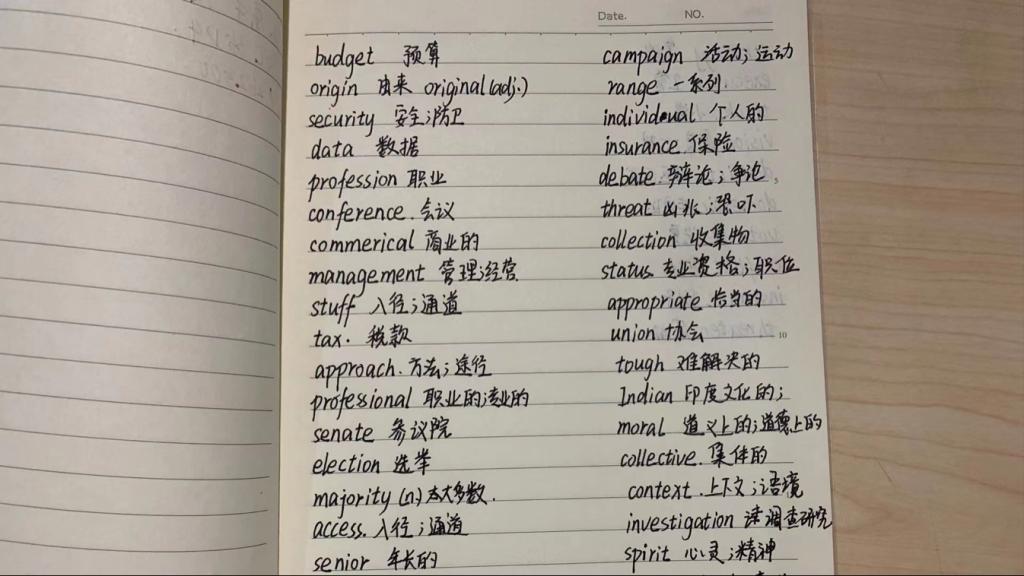 Date. NO.
budget 预算
origin 由来 original (adj.)
security 安全;防卫
data 数据
profession 职业
conference. 会议
commerical 商业的
management 管理;经营
stuff 入径;通道
tax. 税款
approach. 方法;途径
professional 职业的;专业的
senate 参议院
election 选举
majority (n.) 大多数.
access. 入径;通道
senior 年长的
campaign 活动;运动
range 一系列.
individual 个人的
insurance 保险
debate 辩论;争论
threat 凶兆;恐吓
collection 收集物
status 专业资格;职位
appropriate 恰当的
union 协会
tough 难解决的
Indian 印度文化的;
moral 道义上的;道德上的
collective. 集体的
context. 上下文;语境
investigation 调查研究
spirit 心灵;精神
10